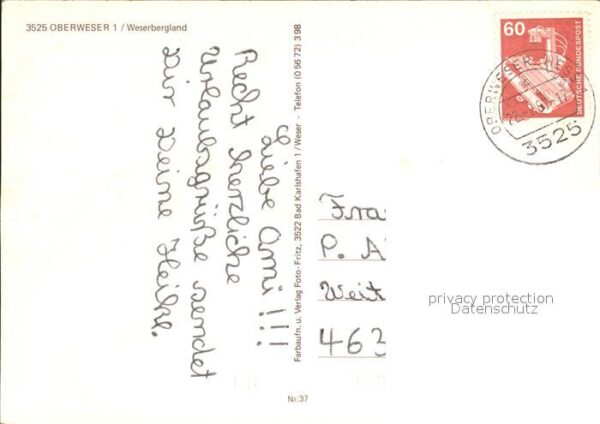 3525 OBERWESER 1 / Weserbergland
Liebe Omi!!!
Recht herzliche
Urlaubsgrüße sendet
Dir Deine Heike.
Farbaufn. u. Verlag Foto-Fritz, 3522 Bad Karlshafen 1 / Weser - Telefon (0 56 72) 3 98
60
DEUTSCHE BUNDESPOST
OBERWESER
3525
Fra
P. A
Weit
463
privacy protection
Datenschutz
Nr. 37